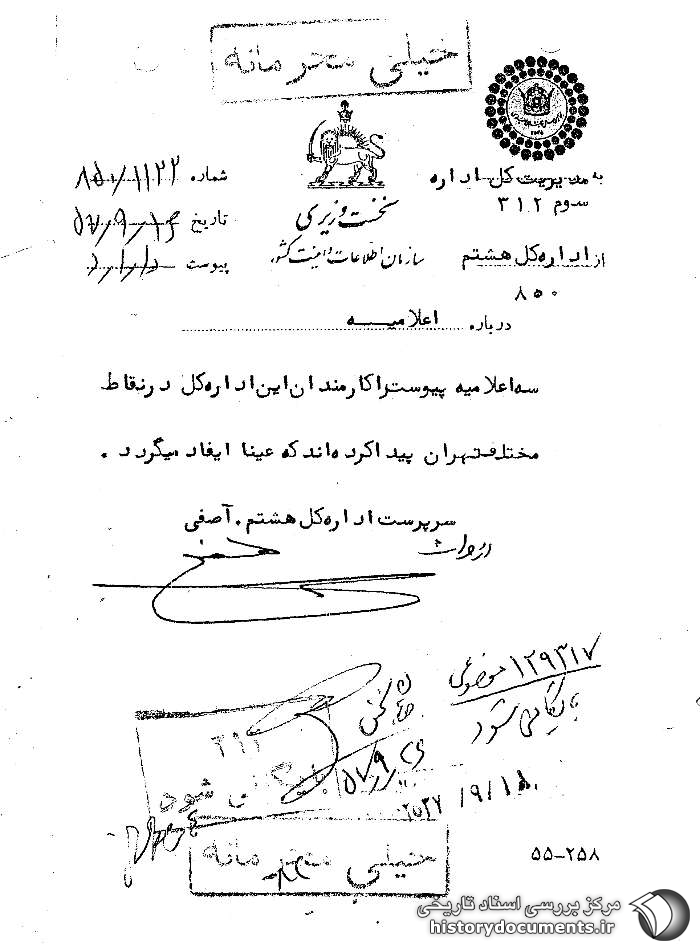 خیلی محرمانه
به مدیریت کل اداره
سوم ۳۱۲
شماره ۸۵۰/۱۱۳۲
نخست وزیری
تاریخ
از اداره کل هشتم
سازمان اطلاعات و امنیت کشور
پیوست
۸۵۰
درباره اعلامیه
سه اعلامیه پیوست را کارمندان این اداره کل در نقاط
مختلف تهران پیدا کرده اند که عینا ایفاد میگردد .
سرپرست اداره کل هشتم . آصفی
۱۲۹۳۱۷
بایگانی شود
۳۱۲
بایگانی شود
۲۵۳۷/۹/۱۸
خیلی محرمانه
۵۵-۲۵۸
مرکز بررسی اسناد تاریخی
historydocuments.ir